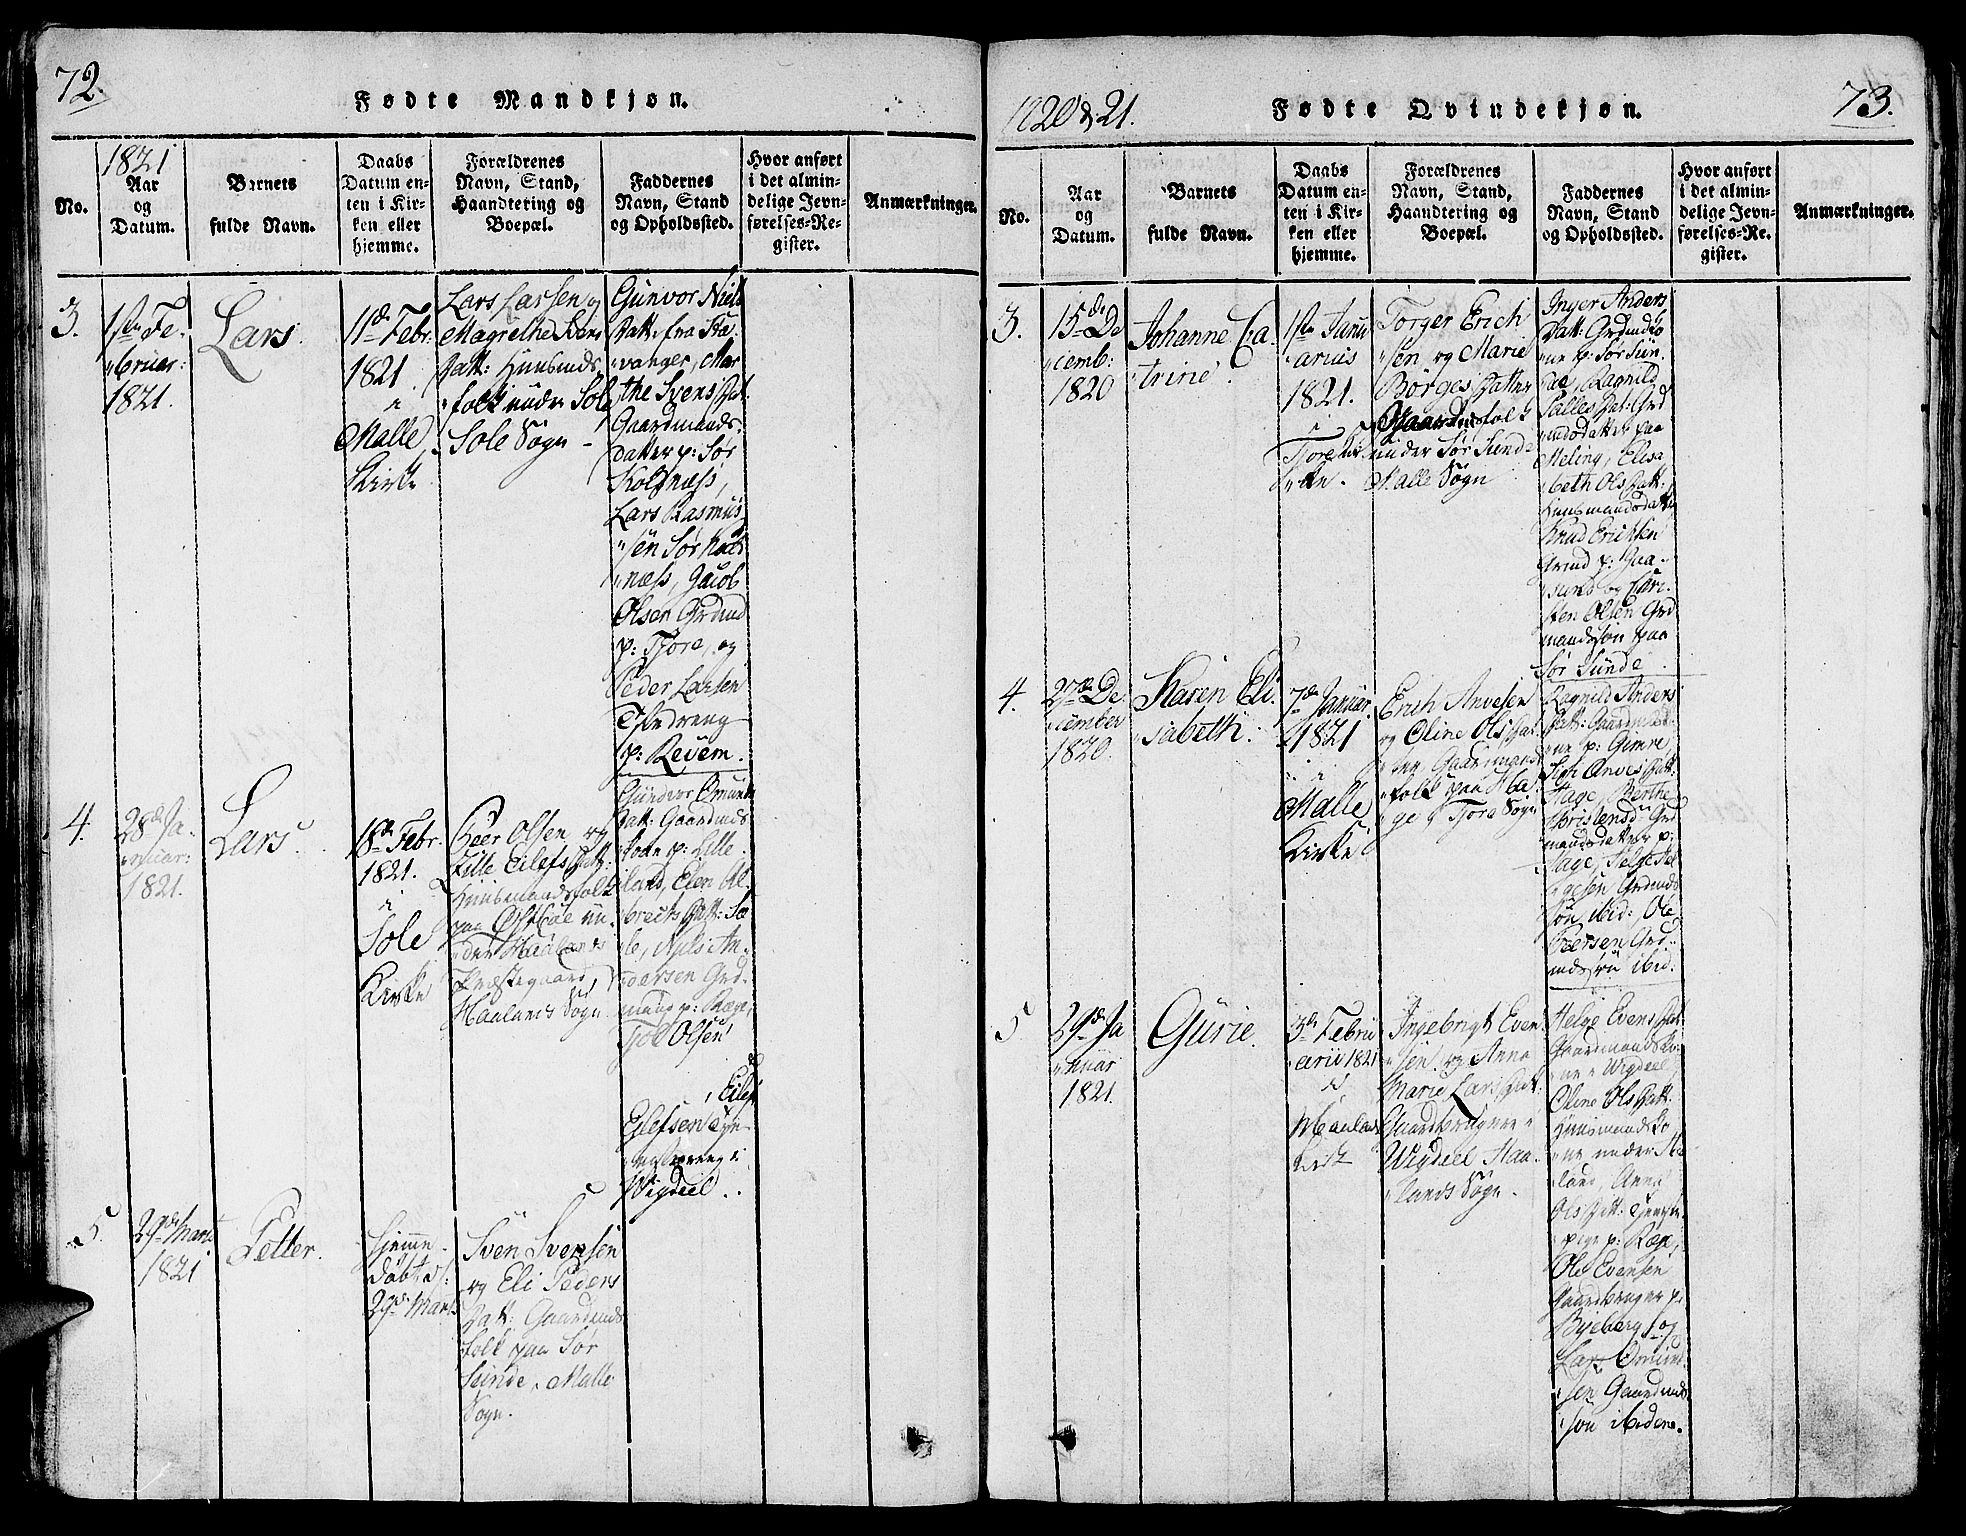 72.
Fødte Mandkjøn.
1821
No.
Aar
og
Datum.
Barnets
fulde Navn.
Daabs
Datum en-
ten i Kir-
ken eller
hjemme.
Forældrenes
Navn, Stand,
Haandtering og
Boepæl.
Faddernes
Navn, Stand
og Opholdssted.
Hvor anført
i det almin-
delige Jevn-
førelses-Re-
gister.
Anmærkninger.
3.
1ste Fe-
"bruar:
1821.
Lars.
11de Febr:
1821
i
Malle
Kirke
Lars Larsen og
Magrethe
Datt: Huusmds
"folk under Sole
Sole Sogn -
Gunvor Niels
Datt: fra Sta-
"vanger, Mar
the Svens Dat.
Gaardmands-
Datter p: Sør
Kolsnæss,
Lars Rasmus
"sen Sør Kols
"næss, Jacob
Olsen Grdmd
p: Tjore, og
Peder Larsen
Tjendreng
p: Revem.
4.
28de Ja-
"nuar:
1821.
Lars.
18de Febr.
1821.
i
Sole
Kirke
Peer Olsen og
Zille Eilefs Datt:
Huusmandsfolk
paa Østhuse un-
"der Haalands
Præstegaard,
Haalands Sogn
Gundvor Omunds
Datt: Gaardmds
kone p: Lille-
land, Elen Al-
brecks Datt: So
le, Niels An-
"dersen Grd-
mand p: Ræge,
Tjøl Olsen
, Eilef
Eilefsen Tje-
"nestedreng i
Wigdeel..
5.
29de Marts
1821
Petter.
Hjemme-
døbt d/:
29de Marts
Sven Svensen
og Eli Peders
Datt: Gaardmds
folk paa Sør
Sunde, Malle
Sogn.
1820 & 21.
Fødte Qvindekjøn.
73.
No.
Aar
og
Datum.
Barnets
fulde Navn.
Daabs
Datum en-
ten i Kir-
ken eller
hjemme.
Forældrenes
Navn, Stand,
Haandtering og
Boepæl.
Faddernes
Navn, Stand
og Opholdssted.
Hvor anført
i det almin-
delige Jevn-
førelses-Re-
gister.
Anmærkninger.
3.
15de De
"cemb:
1820
Johanne Ca
"trine.
1ste Janu
"arius
1821.
i
Tjore Kir
"ke.
Torger Erich
"sen og Marie
Børges Datter
Gaardmdsfolk
under Sør Sunde
Malle Sogn
Inger Anders
Datt: Grdmdsko
ne p: Sør Sun-
de, Ragnild
Salles Dat: Grd
mdsdatter paa
Meling, Elisa
beth Ols Datt:
Huusmandsdatt
Knud Erichsen
p: Gaa-
sund og Cari-
sten Olsen Grd
mandssøn paa
Sør Sunde.
4.
27de De
"cember
1820.
Karen Eli-
"sabeth.
7de Januar.
1821
i
Malle
Kirke
Erich Anvesen
og Oline Ols Dat
ter, Gaardmands
"folk paa Ha-
ge, Tjore Sogn
Ragnild Anders
Datt: Gaardmdsk
ne p: Gimre,
Siri Anves Datt:
Hage, Berthe
Christensd: Grd
mandsdatter p:
Hage, Helje Hel
gesen Grdmds
søn ibid:, Ole
Peersen Grd-
mdssøn ibid.
5
29de Ja
"nuar
1821.
Gurie.
3de Febru
"arii 1821
i
Haalands
Kirke
Ingebrigt Even
"sen og Anna
Marie Lars Dat.
Gaardbrugere i
Wigdeel Haa-
"lands Sogn.
Helge Evens Dat.
Gaardmandsko-
ne i Wigdeel,
Oline Ols Datt.
Huusmandsko
ne under Ha
land, Anna
Ols Datt: Tjeneste-
pige p: Ræge,
Ole Evensen
Gaardbruger p:
Byeberg, og
Lars Omund-
sen Gaardmds
søn ibidem.